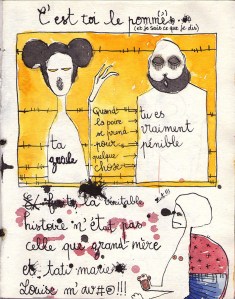 C'est toi le pommé,...
(et je sais ce que je dis)
ta
gueule
Quand
la poire
se prend
pour
quelque
chose
tu es
vraiment
pénible
Et fuck la véritable
histoire n'était pas
celle que grand mère
et tati marie
Louise m'av#@!!!